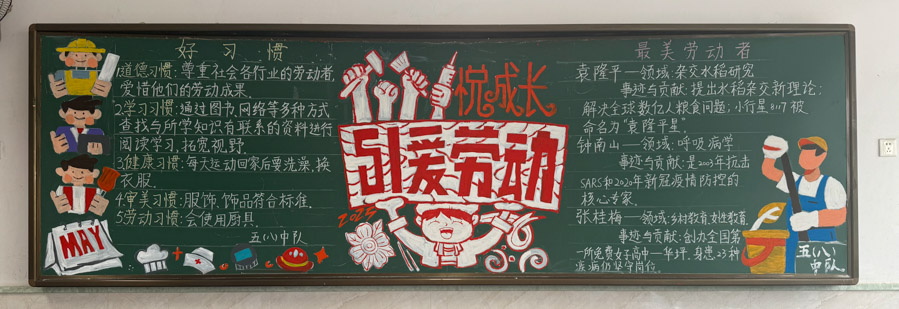 好习惯
1道德习惯:尊重社会各行业的劳动者,
爱惜他们的劳动成果.
2.学习习惯:通过图书.网络等多种方式
查找与所学知识有联系的资料进行
阅读学习,拓宽视野.
3健康习惯:每天运动回家后要洗澡,换
衣服.
4.审美习惯:服饰.饰品符合标准.
5劳动习惯:会使用厨具.
五(八)中队
MAY
悦成长
51爱劳动
2025
最美劳动者
袁隆平—领域:杂交水稻研究
事迹与贡献:提出水稻杂交新理论;
解决全球数亿人粮食问题;小行星8117被
命名为"袁隆平星"
钟南山—领域:呼吸病学
事迹与贡献:是2003年抗击
SARS和2020年新冠疫情防控的
核心专家.
张桂梅—领域:乡村教育,女性教育.
事迹与贡献:创办全国第
一所免费女子高中—华坪.身患23种
疾病仍坚守岗位.
五(八)
中队